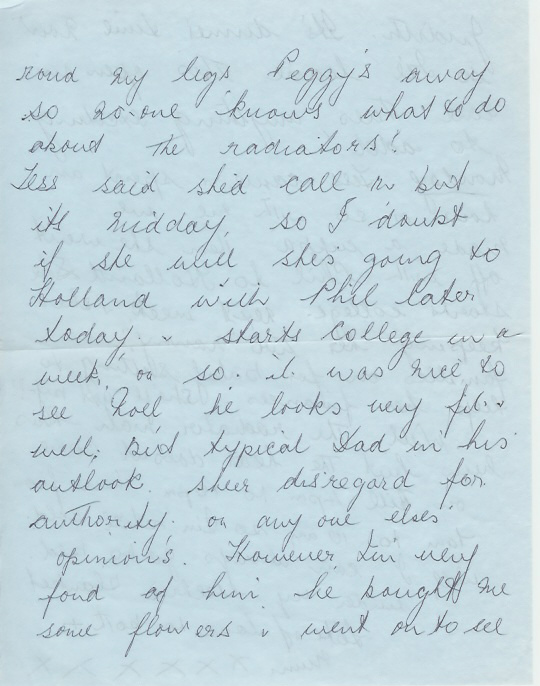 round my legs Peggy's away
so no-one knows what to do
about the radiators!
Tess said she'd call in but
its midday, so I doubt
if she will she's going to
Holland with Phil later
today. & starts college in a
week or so. it was nice to
see Noel he looks very fit &
well, But typical Dad in his
outlook. sheer disregard for
authority. or any one elses'
opinion's. However I'm very
fond of him. he bought me
some flowers & went on to see